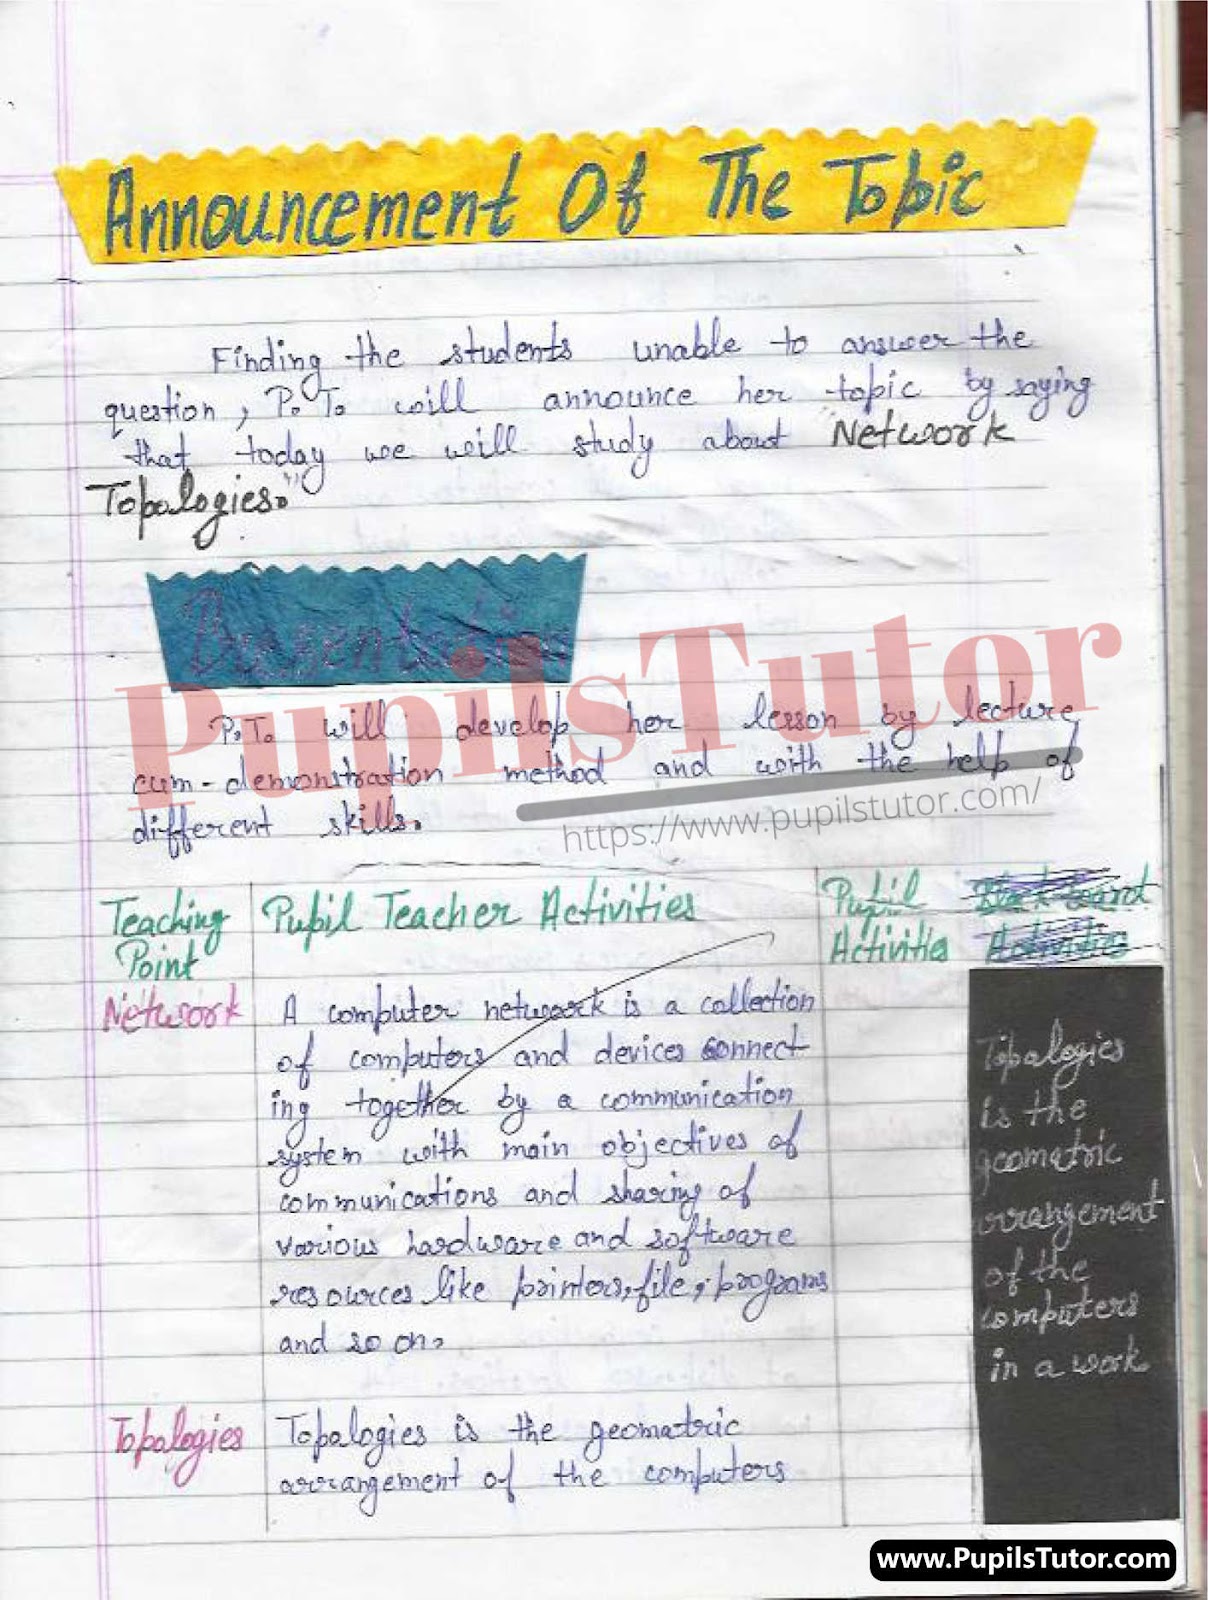 Announcement Of The Topic
Finding the students unable to answer the
question, P.T. will announce her topic by saying
that today we will study about "Network
Topalogies."
Presentation
PupilsTutor
P.T. will develop her lesson by lecture
cum-demonstration method and with the help of
https://www.pupilstutor.com/
different skills.
Teaching
Point
Pupil Teacher Activities
Pupil
Activities
Black board
Activities
Network
A computer network is a collection
of computers and devices connect-
ing together by a communication
system with main objectives of
communications and sharing of
various hardware and software
resources like printers, file, programs
and so on.
Topalogies
is the
geomatric
arrangement
of the
computers
in a work
Topalogies
Topalogies is the geomatric
arrangement of the computers
www.PupilsTutor.com